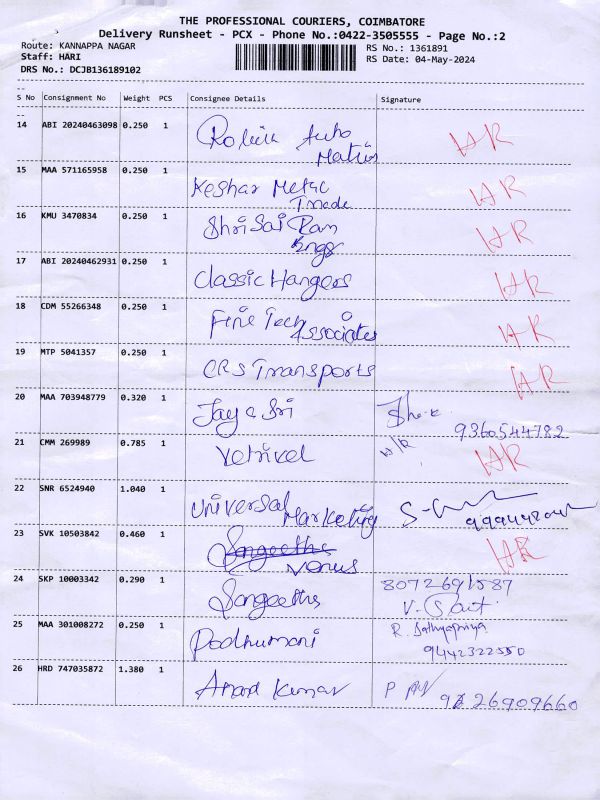 THE PROFESSIONAL COURIERS, COIMBATORE
Delivery Runsheet - PCX - Phone No.:0422-3505555 - Page No.:2
Route: KANNAPPA NAGAR
RS No.: 1361891
Staff: HARI
RS Date: 04-May-2024
DRS No.: DCJB136189102
S No Consignment No Weight PCS Consignee Details Signature
14 ABI 20240463098 0.250 1 Auto HR
15 MAA 571165958 0.250 1 Keshar Metal HR
Trade
16 KMU 3470834 0.250 1 Shri Sai Ram HR
Engg
17 ABI 20240462931 0.250 1 Classic Hangers HR
18 CDM 55266348 0.250 1 Fine Tech HR
Associates
19 MTP 5041357 0.250 1 CRS Transports HR
20 MAA 703948779 0.320 1 Jaya Sri
9360544782
21 CMM 269989 0.785 1 Vetrivel H/R HR
22 SNR 6524940 1.040 1 Universal
Marketing
23 SVK 10503842 0.460 1 Sangeetha HR
Venus
24 SKP 10003342 0.290 1 Sangeetha 8072691587
25 MAA 301008272 0.250 1 Padhumani R. Sathyapriya
9442322550
26 HRD 747035872 1.380 1 Anand Kumar 9226909660